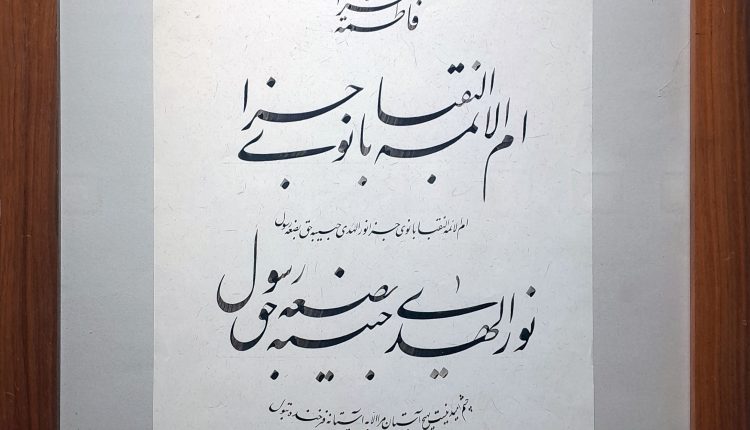 فاطمه زهرا
ام الائمه النقبا بانوی جزا
ام الائمه النقبا بانوی جزا نور الهدی حبیبه حق بضعه رسول
نور الهدی حبیبه حق بضعه رسول